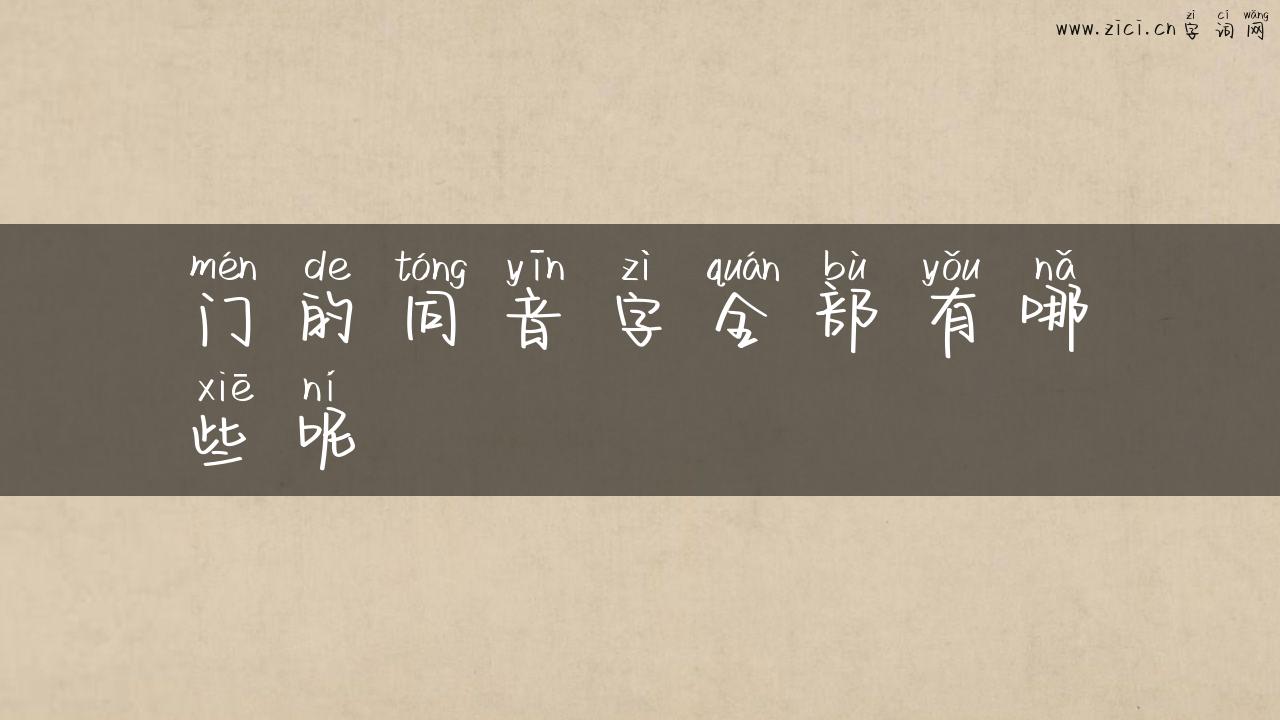 zì cí wǎng
www.zici.cn 字词网
mén de tóng yīn zì quán bù yǒu nǎ
门的同音字全部有哪
xiē ní
些呢